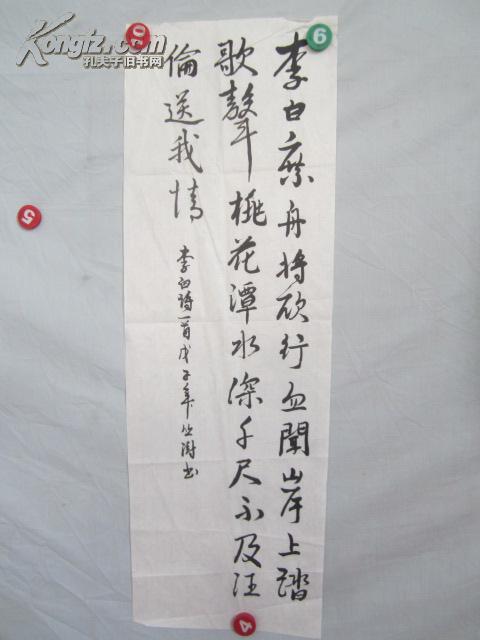 李白乘舟将欲行忽聞岸上踏
歌聲桃花潭水深千尺不及汪
倫送我情
李白詩一首戊子年書
Kongfz.com
孔夫子旧书网
5
4